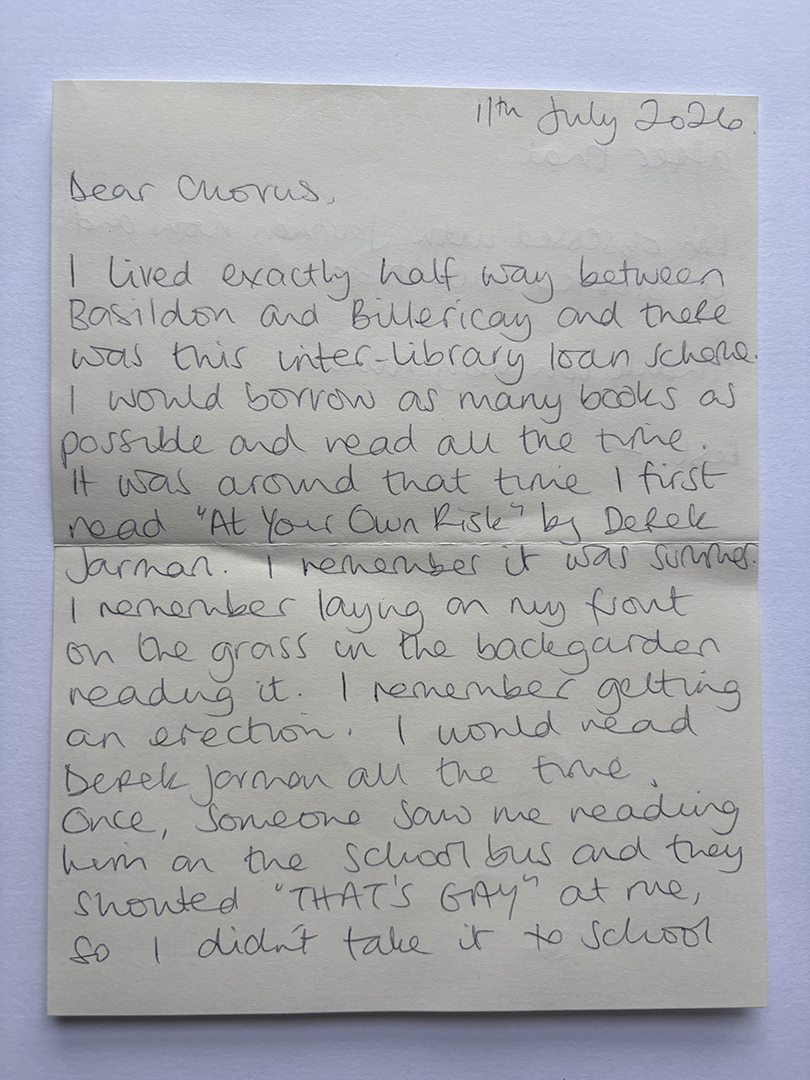 11th July 2026.
Dear Chorus,
I lived exactly half way between
Basildon and Billericay and there
was this inter-library loan scheme.
I would borrow as many books as
possible and read all the time.
It was around that time I first
read "At Your Own Risk" by Derek
Jarman. I remember it was summer.
I remember laying on my front
on the grass in the backgarden
reading it. I remember getting
an erection. I would read
Derek Jarman all the time.
Once, someone saw me reading
him on the school bus and they
shouted "THAT'S GAY" at me,
so I didn't take it to school